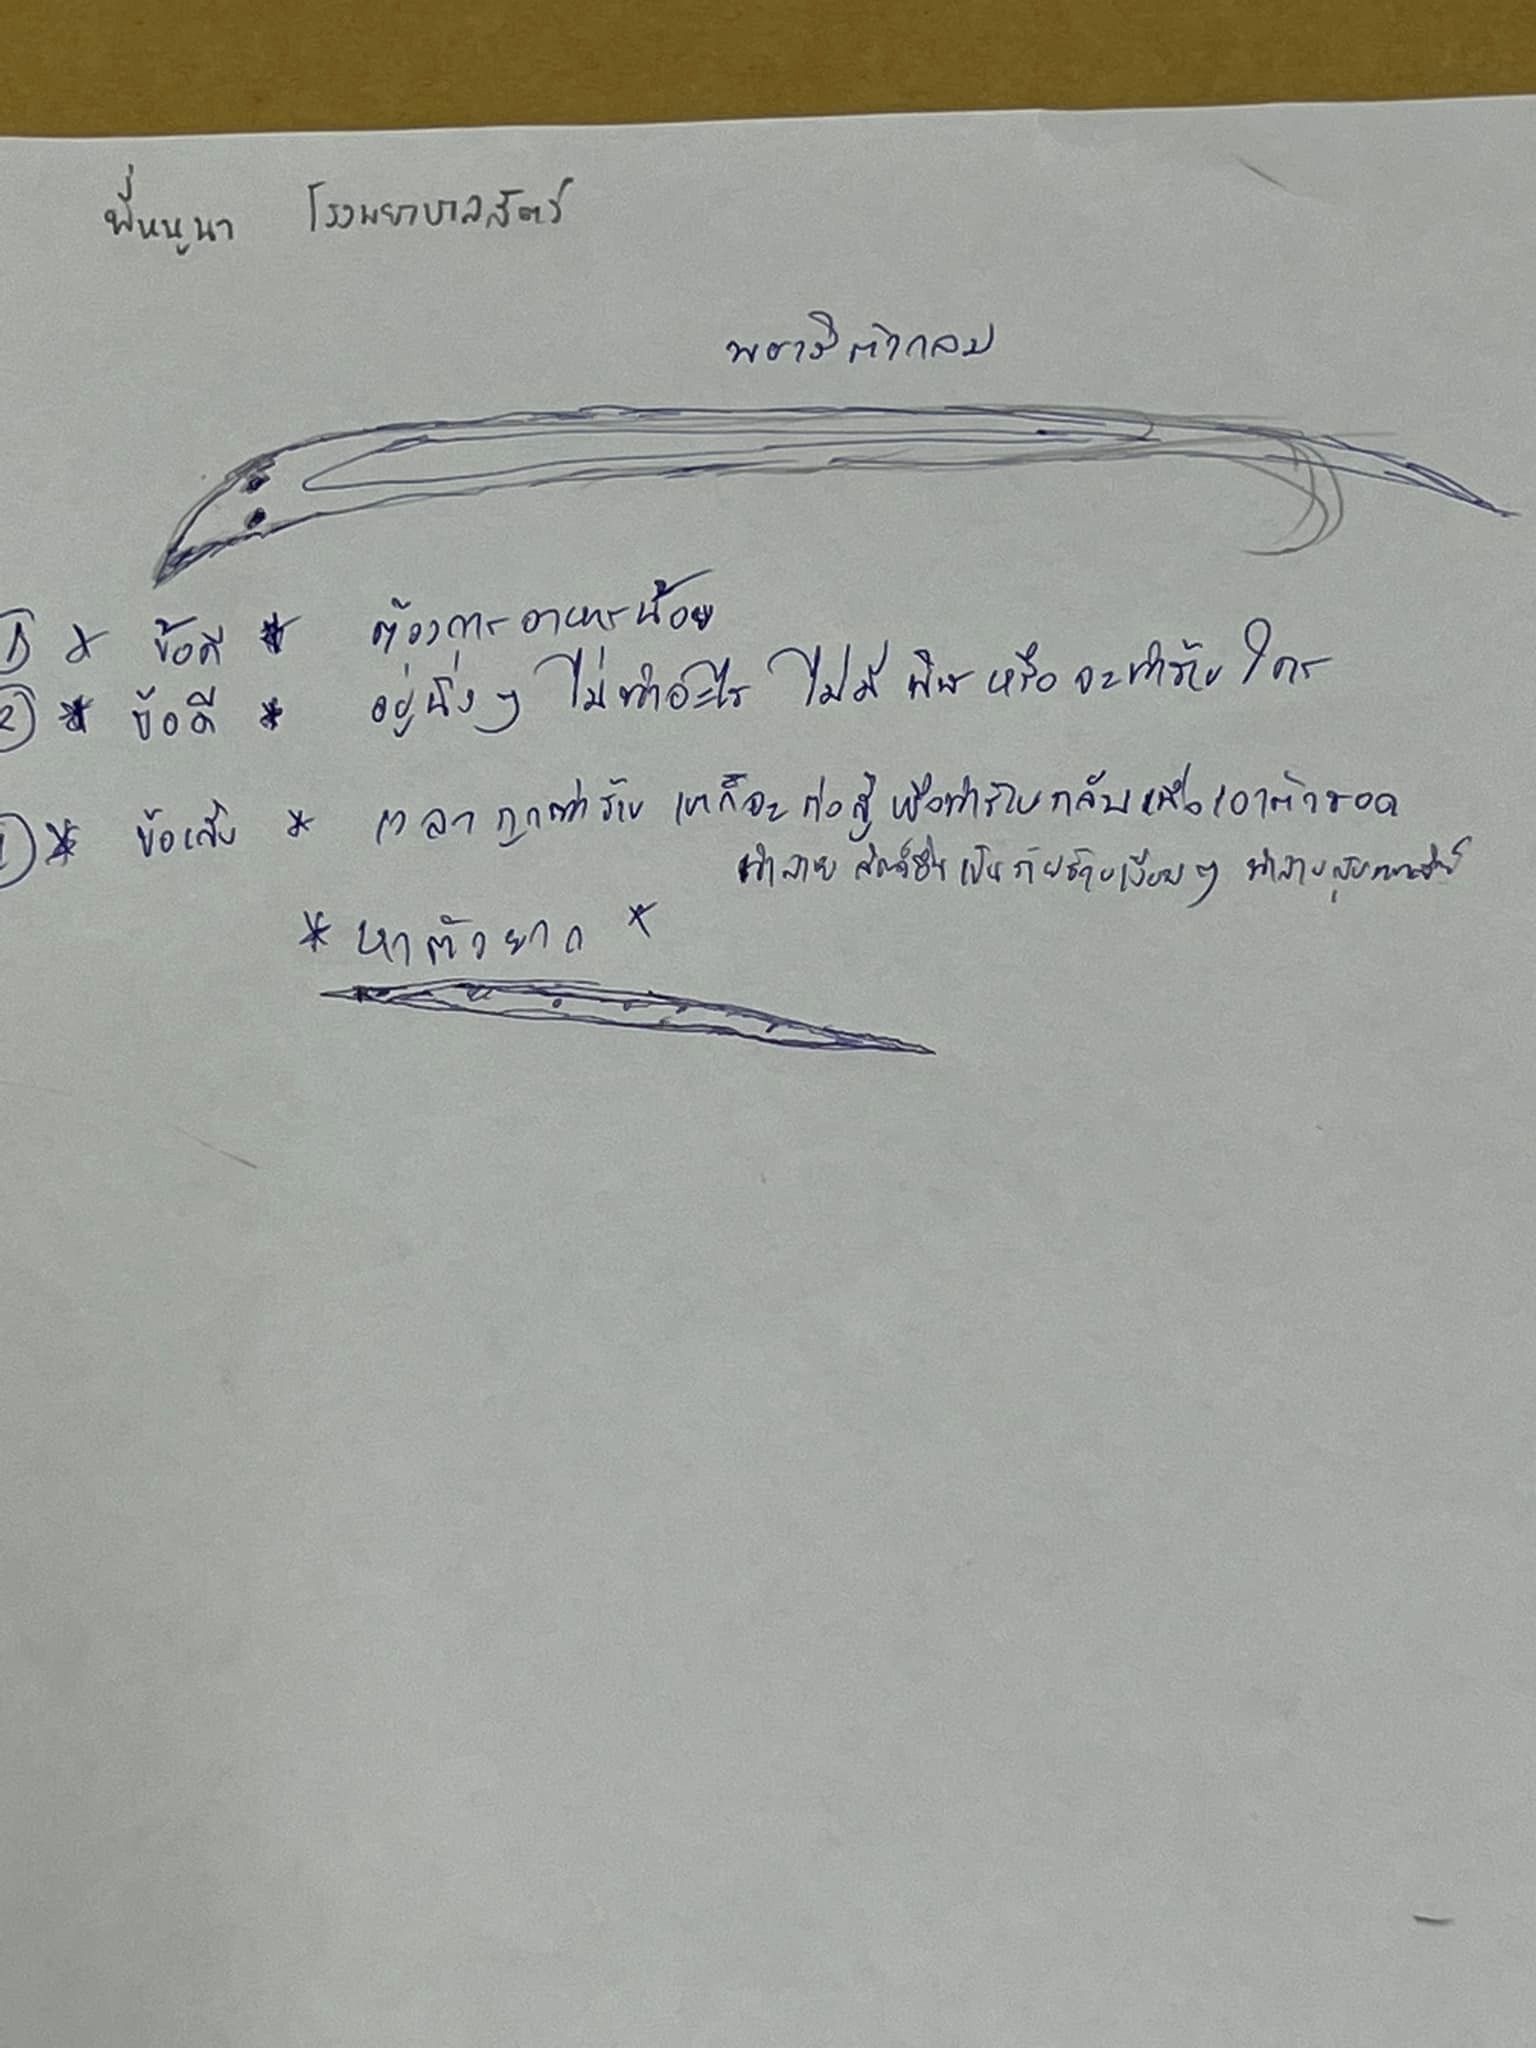 พี่หนูนา โรงพยาบาลสัตว์
พยาธิตัวกลม
① ข้อดี * ต้องการอาหารน้อย
② * ข้อดี * อยู่นิ่งๆ ไม่ทำอะไร ไม่มีพิษหรือจะทำร้ายใคร
① * ข้อเสีย * เวลาถูกทำร้าย เขาก็จะต่อสู้ หรือทำร้ายกลับเพื่อเอาตัวรอด
ทำลายสัตว์อื่น เป็นภัยร้ายเงียบๆ ทำลาย
* หาตัวยาก *